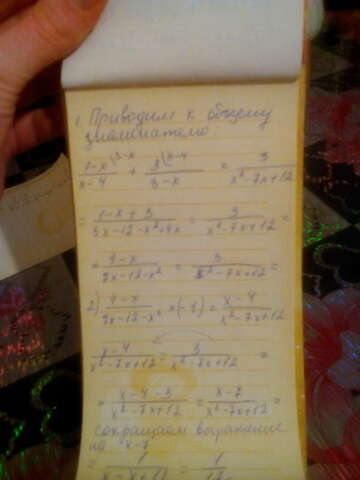 1 Приводим к общему
знаменателю
(1-x)/(x-4) |3-x + 3/(3-x) |x-4 = 3/(x²-7x+12)
= (1-x+3)/(3x-12-x²+4x) = 3/(x²-7x+12) =
= (4-x)/(7x-12-x²) = 3/(x²-7x+12) =
2) (4-x)/(7x-12-x²) × (-1) = (x-4)/(x²-7x+12)
(x-4)/(x²-7x+12) - 3/(x²-7x+12) =
= (x-4-3)/(x²-7x+12) = (x-7)/(x²-7x+12) =
сокращаем выражение
на x-7